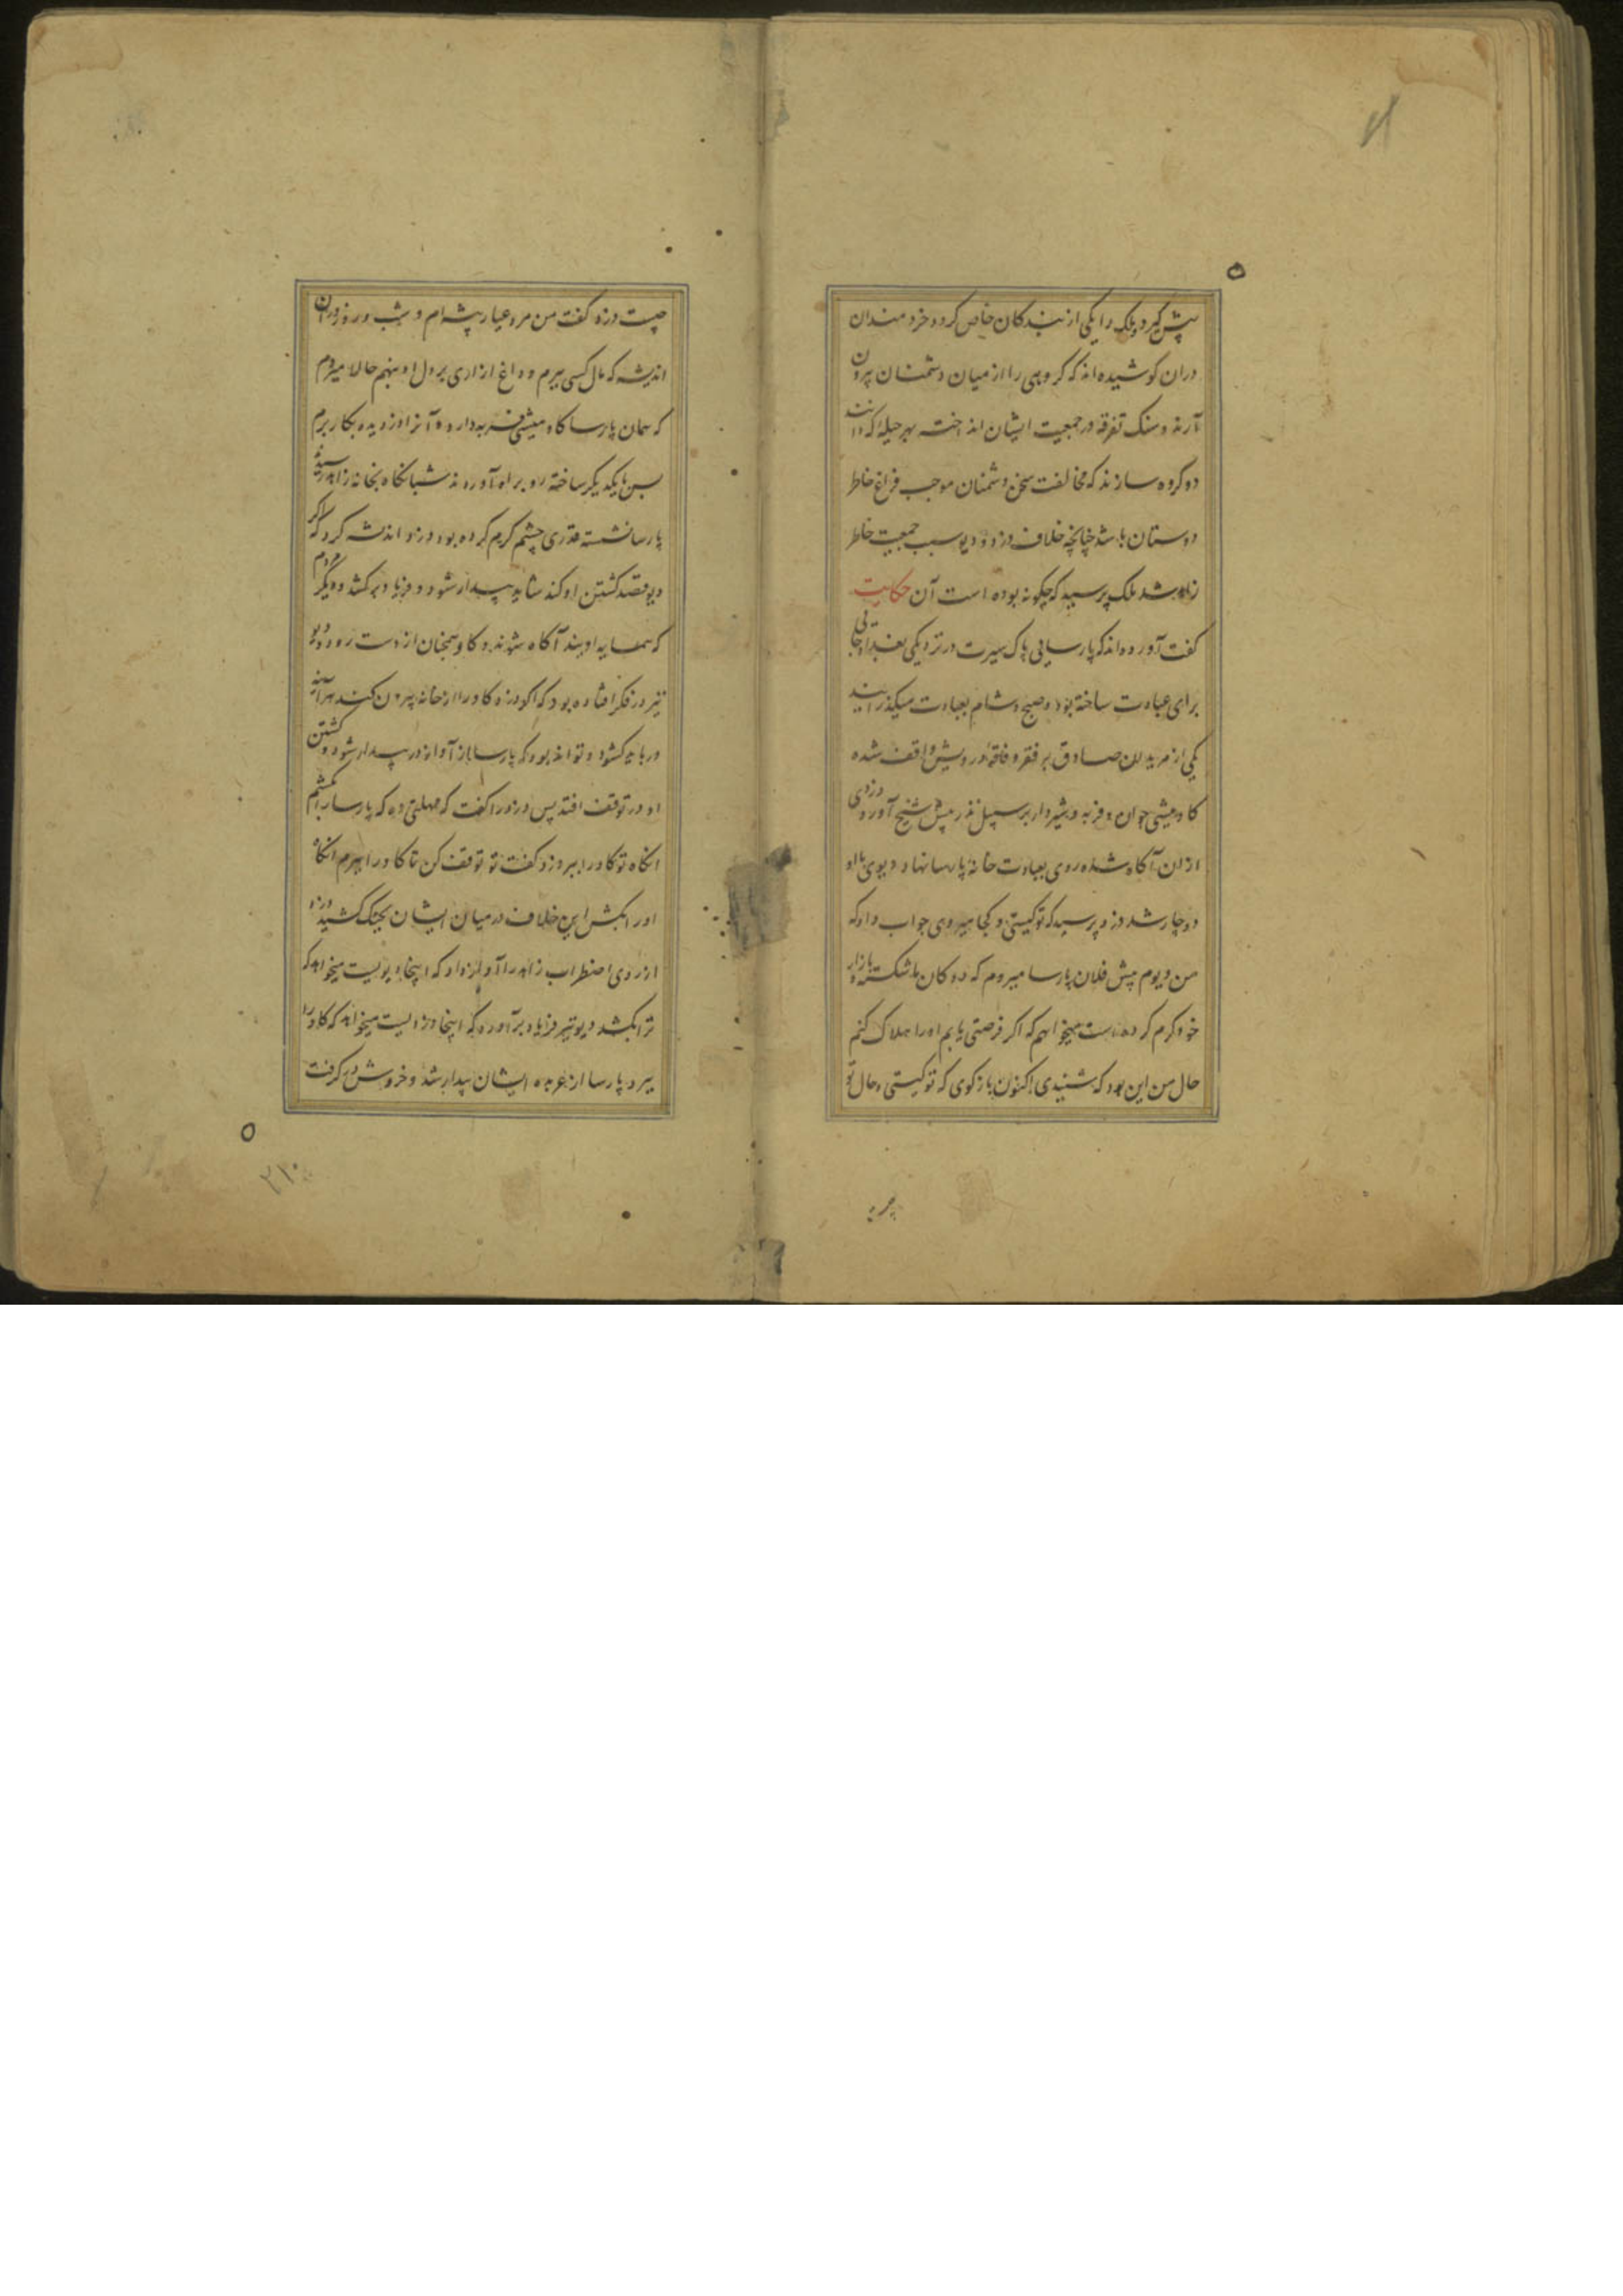 پیش گیرد و ملک را یکی از بندکان خاص کردد خردمندان
دران کوشیده اند که کروهی را از میان دشمنان بیرون
آرند و سنک تفرقه در جمعیت ایشان انداخته بهر حیله که دانند
دو کروه سازند که مخالفت سخن دشمنان موجب فراغ خاطر
دوستان باشد چنانچه خلاف دزد و دیو سبب جمعیت خاطر
زاهد شد ملک پرسید که چکونه بوده است آن حکایت
کفت آورده اند که پارسائی پاک سیرت در نزدیکی بغداد جائی
برای عبادت ساخته بود و صبح و شام بعبادت میکذرانید
یکی از مریدان صادق بر فقر و فاقه درویش واقف شده
کاومیشی جوان و فربه و شیردار بر سبیل نذر پیش شیخ آورد دزدی
ازان آکاه شده روی بعبادت خانه پارسا نهاد دیوی با او
دوچار شد دزد پرسید که تو کیستی و کجا میروی جواب داد که
من دیوم پیش فلان پارسا میروم که دوکان ما شکسته و بازار
خود کرم کرده است میخواهم که اکر فرصتی یابم او را هلاک کنم
حال من این بود که شنیدی اکنون بازکوی که تو کیستی و حال تو
چیست دزد کفت من مرد عیار پیشه ام و شب و روز دران
اندیشه که مال کسی ببرم و داغ ازاری بر دل او بنهم حالا میروم
که همان پارسا کاومیشی فربه دارد و آنرا دزدیده بکار برم
پس با یکدیکر ساخته رو براه آوردند شبانکاه بخانه زاهد رسیدند
پارسا نشسته قدری چشم کرم کرده بود دزد اندیشه کرد که اکر
دیو قصد کشتن او کند شاید بیدار شود و فریاد برکشد و دیکر مردم
که همسایه او بند آکاه شوند و کاو همچنان از دست رود و دیو
نیز در فکر افتاده بود که اکر دزد کاو را از خانه بیرون کند هرآینه
در باید کشود و تواند بود که پارسا از آواز در بیدار شود و کشتن
او در توقف افتد پس دزد را کفت که مهلتی ده که پارسا را بکشم
انکاه تو کاو را ببر دزد کفت تو توقف کن تا کاو را ببرم انکاه
او را بکش این خلاف در میان ایشان بجنک کشید دزد
از روی اضطراب زاهد را آواز داد که اینجا دیویست میخواهد که
ترا بکشد دیو نیز فریاد برآورد که اینجا دزدیست میخواهد که کاو را
ببرد پارسا از عربده ایشان بیدار شد و خروش در کرفت
۲۱۰